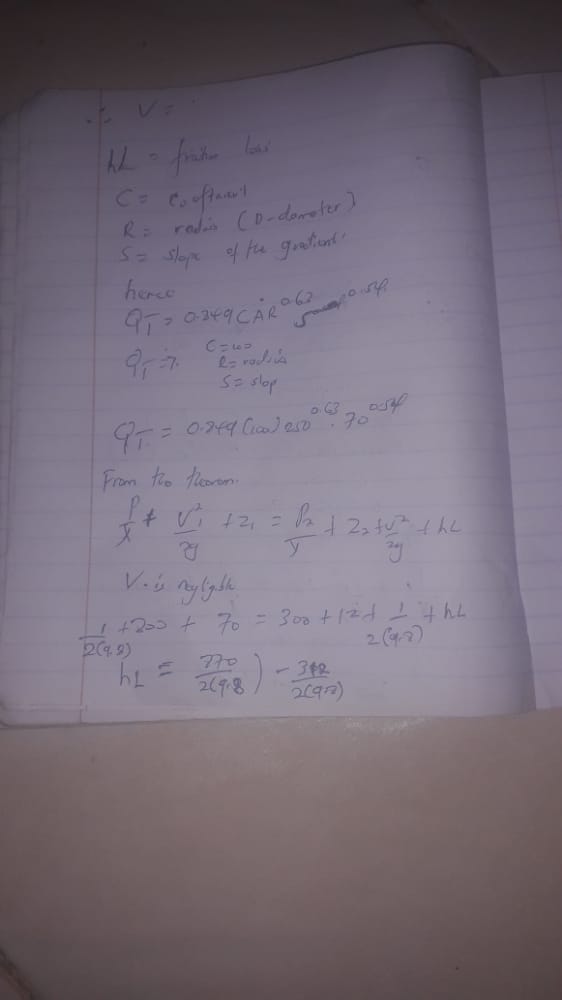 ∴ V =
hL = friction loss
C = coefficient
R = radius (D-diameter)
S = slope of the gradient.
hence
QT = 0.849 C A R^0.63 S^0.54
QT = ?. C = 100
R = radius
S = slop
QT = 0.849 (100) 250^0.63 . 70^0.54
From the theorem.
P/γ + V₁²/2g + Z₁ = P₂/γ + Z₂ + V²/2g + hL
V. is negligible
1/2(9.8) + 200 + 70 = 300 + 12 + 1/2(9.8) + hL
hL = 270/2(9.8) ) - 312/2(9.8)